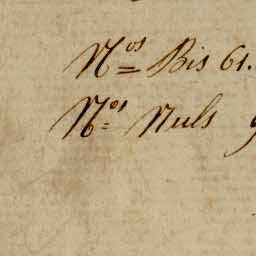 Nos Bis 61.
Nos Nuls 9